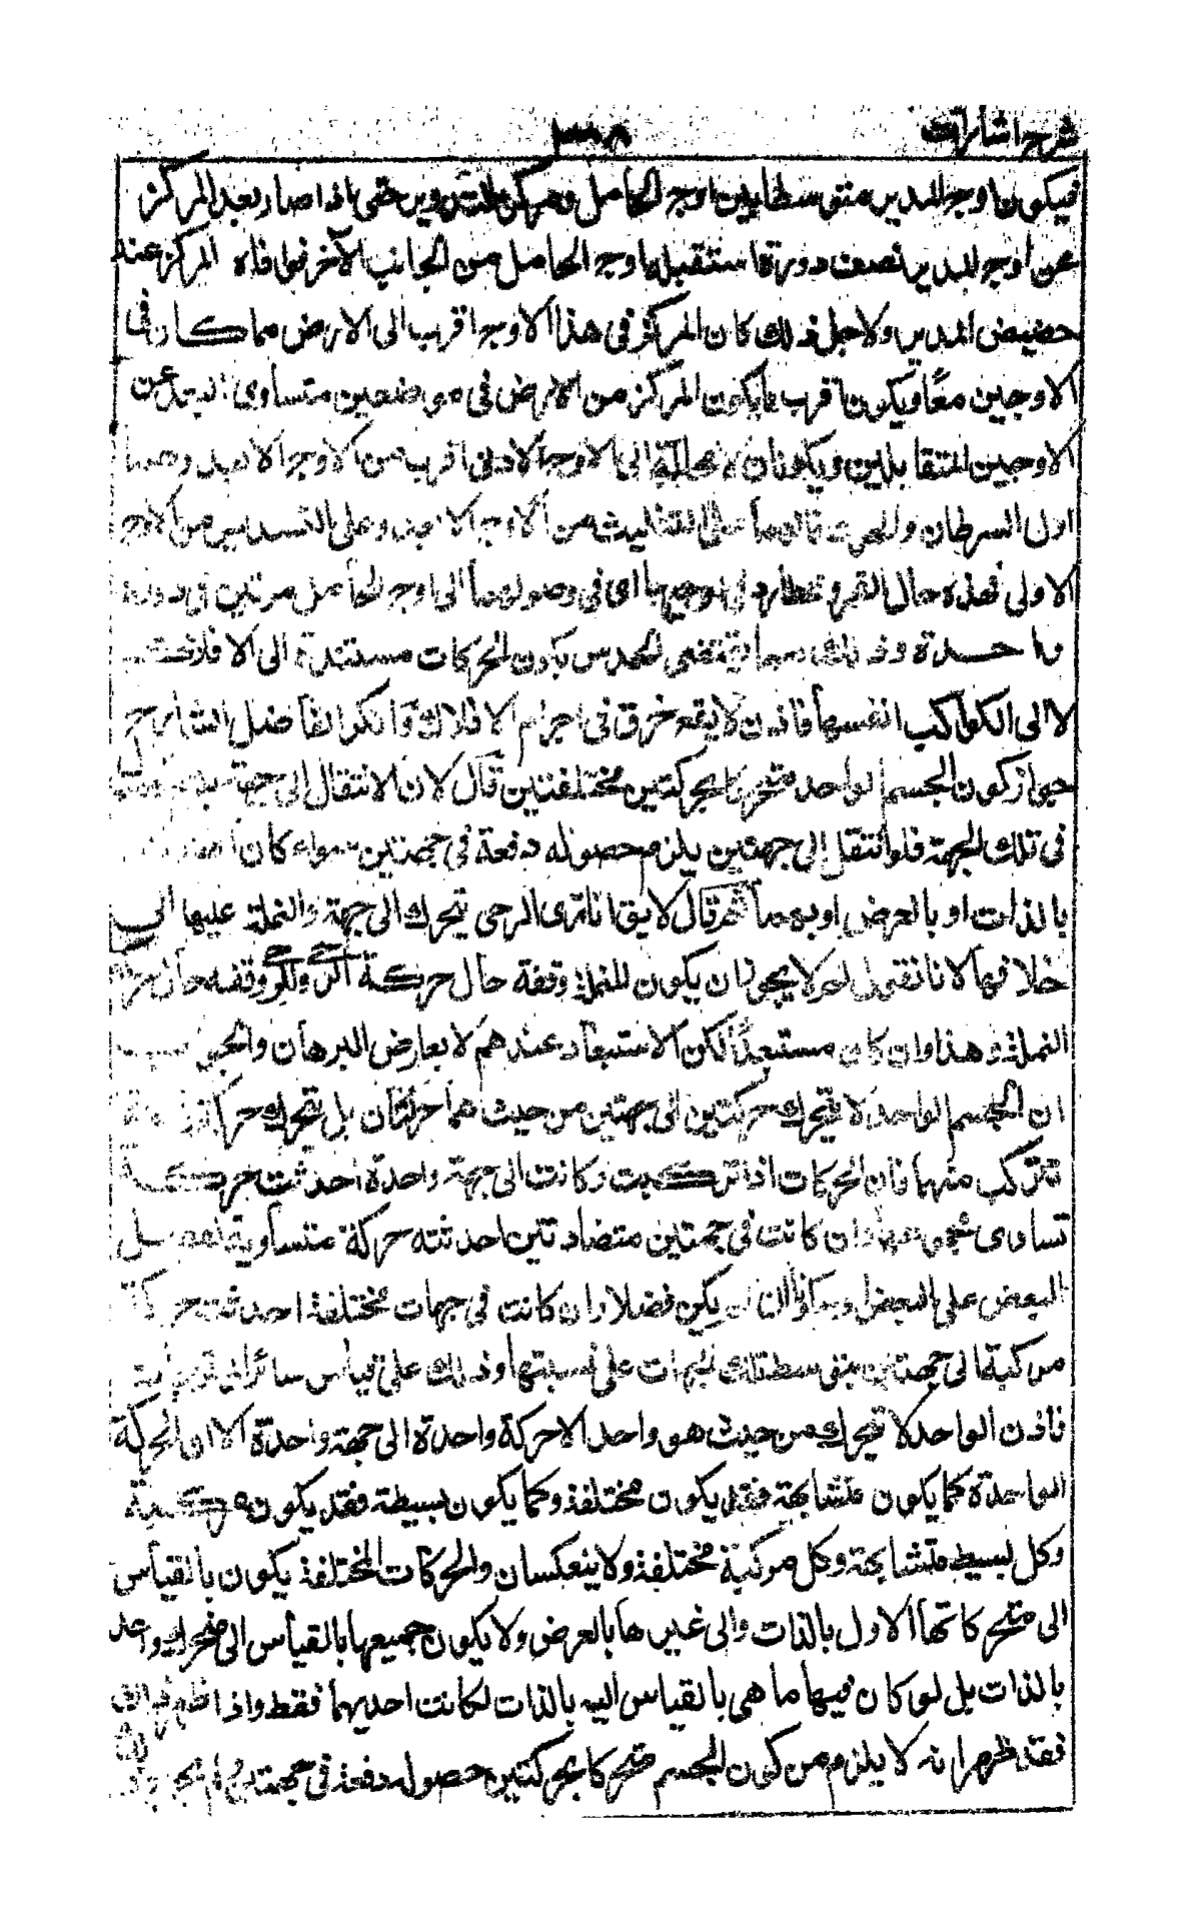 شرح اشارات
فيكون اوج المدير متوسطا بين اوج الحامل ومركز التدوير حتى اذا صار بعد المركز
عن اوج المدير نصف دورة استقبله اوج الحامل من الجانب الآخر فوافاه المركز عند
حضيض المدير ولاجل ذلك كان المركز في هذا الاوج اقرب الى الارض مما كان في
الاوجين معًا ويكون اقرب ما يكون المركز من الارض في موضعين متساوى البعد عن
الاوجين المتقابلين ويكونان لا محالة الى الاوج الادنى اقرب من الاوج الابعد وهما
اول السرطان والحوت فانهما على التثليث من الاوج الابعد وعلى التسديس من الاوج
الاولى فهذه حال القمر وعطارد في اوجيهما اى في وصولهما الى اوج الحامل مرتين في دورة
واحدة وذلك مما يقتضى الحدس بكون الحركات مستندة الى الافلاك
لا الى الكواكب انفسها فاذن لا يقع خرق في اجرام الافلاك وانكر الفاضل الشارح
جواز كون الجسم الواحد متحركا بحركتين مختلفتين قال لان الانتقال الى جهة
في تلك الجهة فلو انتقل الى جهتين يلزم حصوله دفعة في جهتين سواء كان
بالذات او بالعرض او بهما ثم قال لا يق انا نرى الرحى يتحرك الى جهة والنملة عليها الى
خلافها لانا نقول لم لا يجوز ان يكون للنملة وقفة حال حركة الرحى وللرحى وقفة حال حركة
النملة وهذا وان كان مستبعدًا لكن الاستبعاد عندهم لا يعارض البرهان والجواب
ان الجسم الواحد لا يتحرك حركتين الى جهتين من حيث هما حركتان بل يتحرك حركة واحدة
تتركب منهما فان الحركات اذا تركبت وكانت الى جهة واحدة احدثت حركة
تساوى مجموعها وان كانت في جهتين متضادتين احدثت حركة متساوية لفضل
البعض على البعض او سكونا ان لم يكن فضلا وان كانت في جهات مختلفة احدثت حركة
مركبة الى جهة يتوسط تلك الجهات على نسبتها وذلك على قياس سائر
فاذن الواحد لا يتحرك من حيث هو واحد الا حركة واحدة الى جهة واحدة الا ان الحركة
الواحدة كما يكون متشابهة فقد يكون مختلفة وكما يكون بسيطة فقد يكون مركبة
وكل بسيط متشابهة وكل مركبة مختلفة ولا ينعكسان والحركات المختلفة يكون بالقياس
الى متحركاتها الاول بالذات والى غيرها بالعرض ولا يكون جميعها بالقياس الى متحرك واحد
بالذات بل لو كان فيها ما هى بالقياس اليه بالذات لكانت احديهما فقط واذا ظهر ذلك
فقد ظهر انه لا يلزم من كون الجسم متحركا بحركتين حصوله دفعة في جهتين